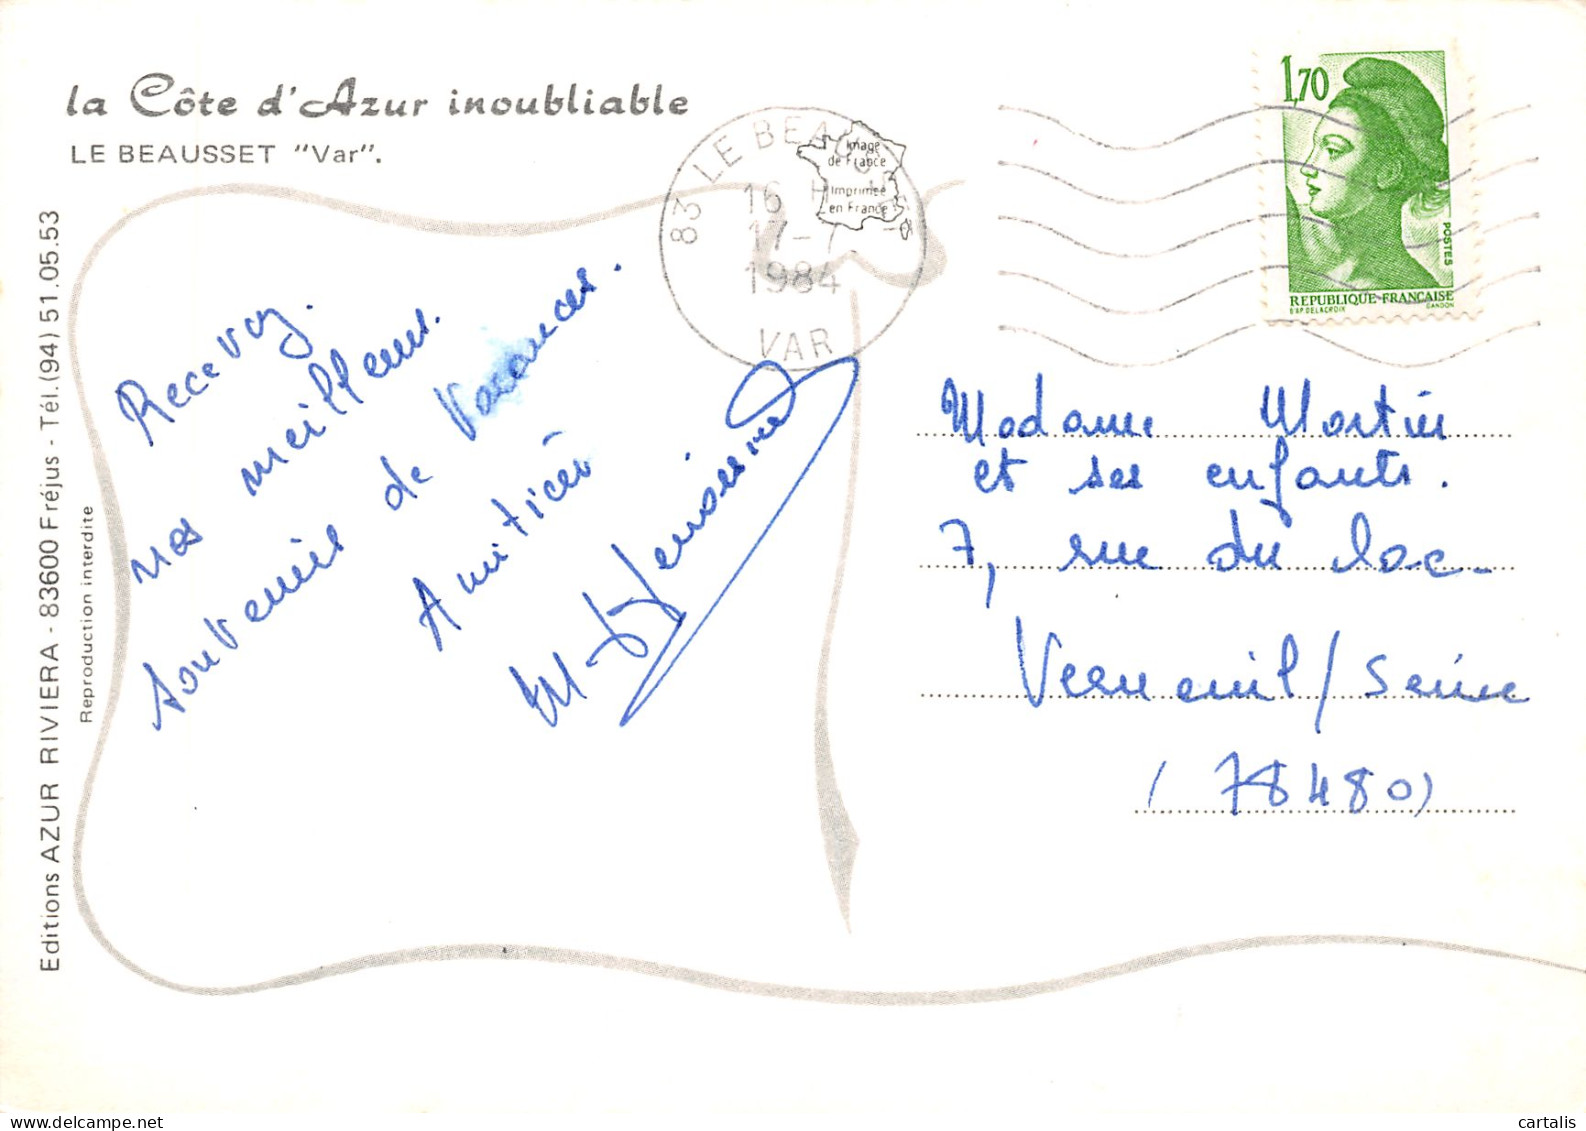 la Côte d'Azur inoubliable
LE BEAUSSET "Var".
Editions AZUR RIVIERA - 83600 Fréjus - Tél. (94) 51.05.53
Reproduction interdite
83 LE BEAUSSET
16 H
17-7
1984
VAR
Image
de France
Imprimée
en France
1,70
POSTES
REPUBLIQUE FRANÇAISE
D'AP. DELACROIX GANDON
Recevez
nos meilleurs
souvenirs de Vacances.
Amitiés
Madame Martin
et ses enfants.
7, rue du lac
Verneuil/Seine
(78480)
cartalis